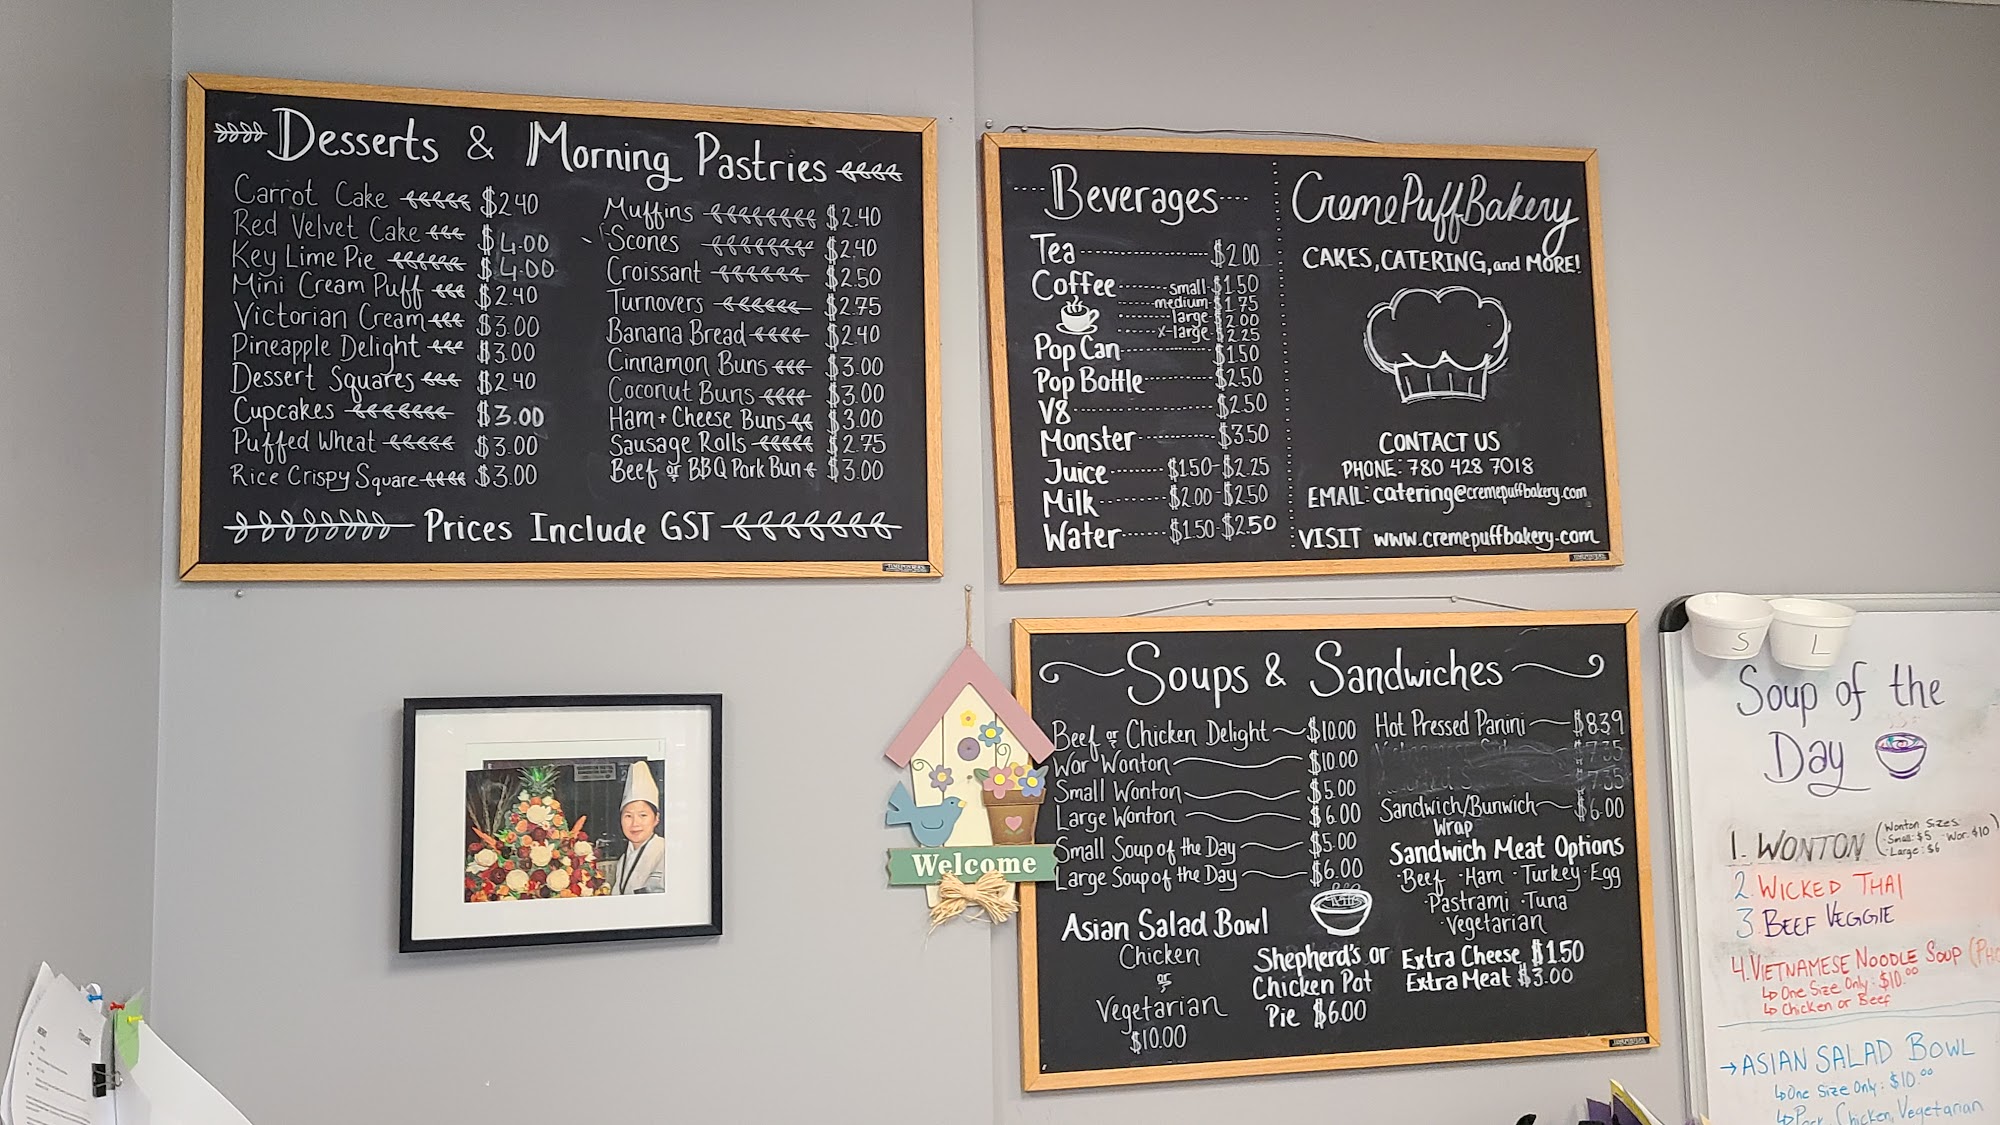 Desserts & Morning Pastries
Carrot Cake $2.40
Red Velvet Cake $4.00
Key Lime Pie $4.00
Mini Cream Puff $2.40
Victorian Cream $3.00
Pineapple Delight $3.00
Dessert Squares $2.40
Cupcakes $3.00
Puffed Wheat $3.00
Rice Crispy Square $3.00
Muffins $2.40
Scones $2.40
Croissant $2.50
Turnovers $2.75
Banana Bread $2.40
Cinnamon Buns $3.00
Coconut Buns $3.00
Ham + Cheese Buns $3.00
Sausage Rolls $2.75
Beef or BBQ Pork Bun $3.00
Prices Include GST
Beverages
Tea $2.00
Coffee small $1.50
medium $1.75
large $2.00
x-large $2.25
Pop Can $1.50
Pop Bottle $2.50
V8 $2.50
Monster $3.50
Juice $1.50-$2.25
Milk $2.00-$2.50
Water $1.50-$2.50
CremePuffBakery
CAKES, CATERING, and MORE!
CONTACT US
PHONE: 780 428 7018
EMAIL: catering@cremepuffbakery.com
VISIT www.cremepuffbakery.com
Welcome
Soups & Sandwiches
Beef or Chicken Delight $10.00
Wor Wonton $10.00
Small Wonton $5.00
Large Wonton $6.00
Small Soup of the Day $5.00
Large Soup of the Day $6.00
Asian Salad Bowl
Chicken
or
Vegetarian
$10.00
Shepherd's or
Chicken Pot
Pie $6.00
Hot Pressed Panini $8.39
$7.35
$7.35
Sandwich/Bunwich $6.00
Wrap
Sandwich Meat Options
·Beef ·Ham ·Turkey ·Egg
·Pastrami ·Tuna
·Vegetarian
Extra Cheese $1.50
Extra Meat $3.00
S
L
Soup of the
Day
1. WONTON (Wonton Sizes:
Small: $5 Wor: $10
Large: $6)
2. WICKED THAI
3. BEEF VEGGIE
4. VIETNAMESE NOODLE SOUP
↳ One Size Only: $10.00
↳ Chicken or Beef
→ ASIAN SALAD BOWL
↳ One Size Only: $10.00
↳ Pork, Chicken, Vegetarian